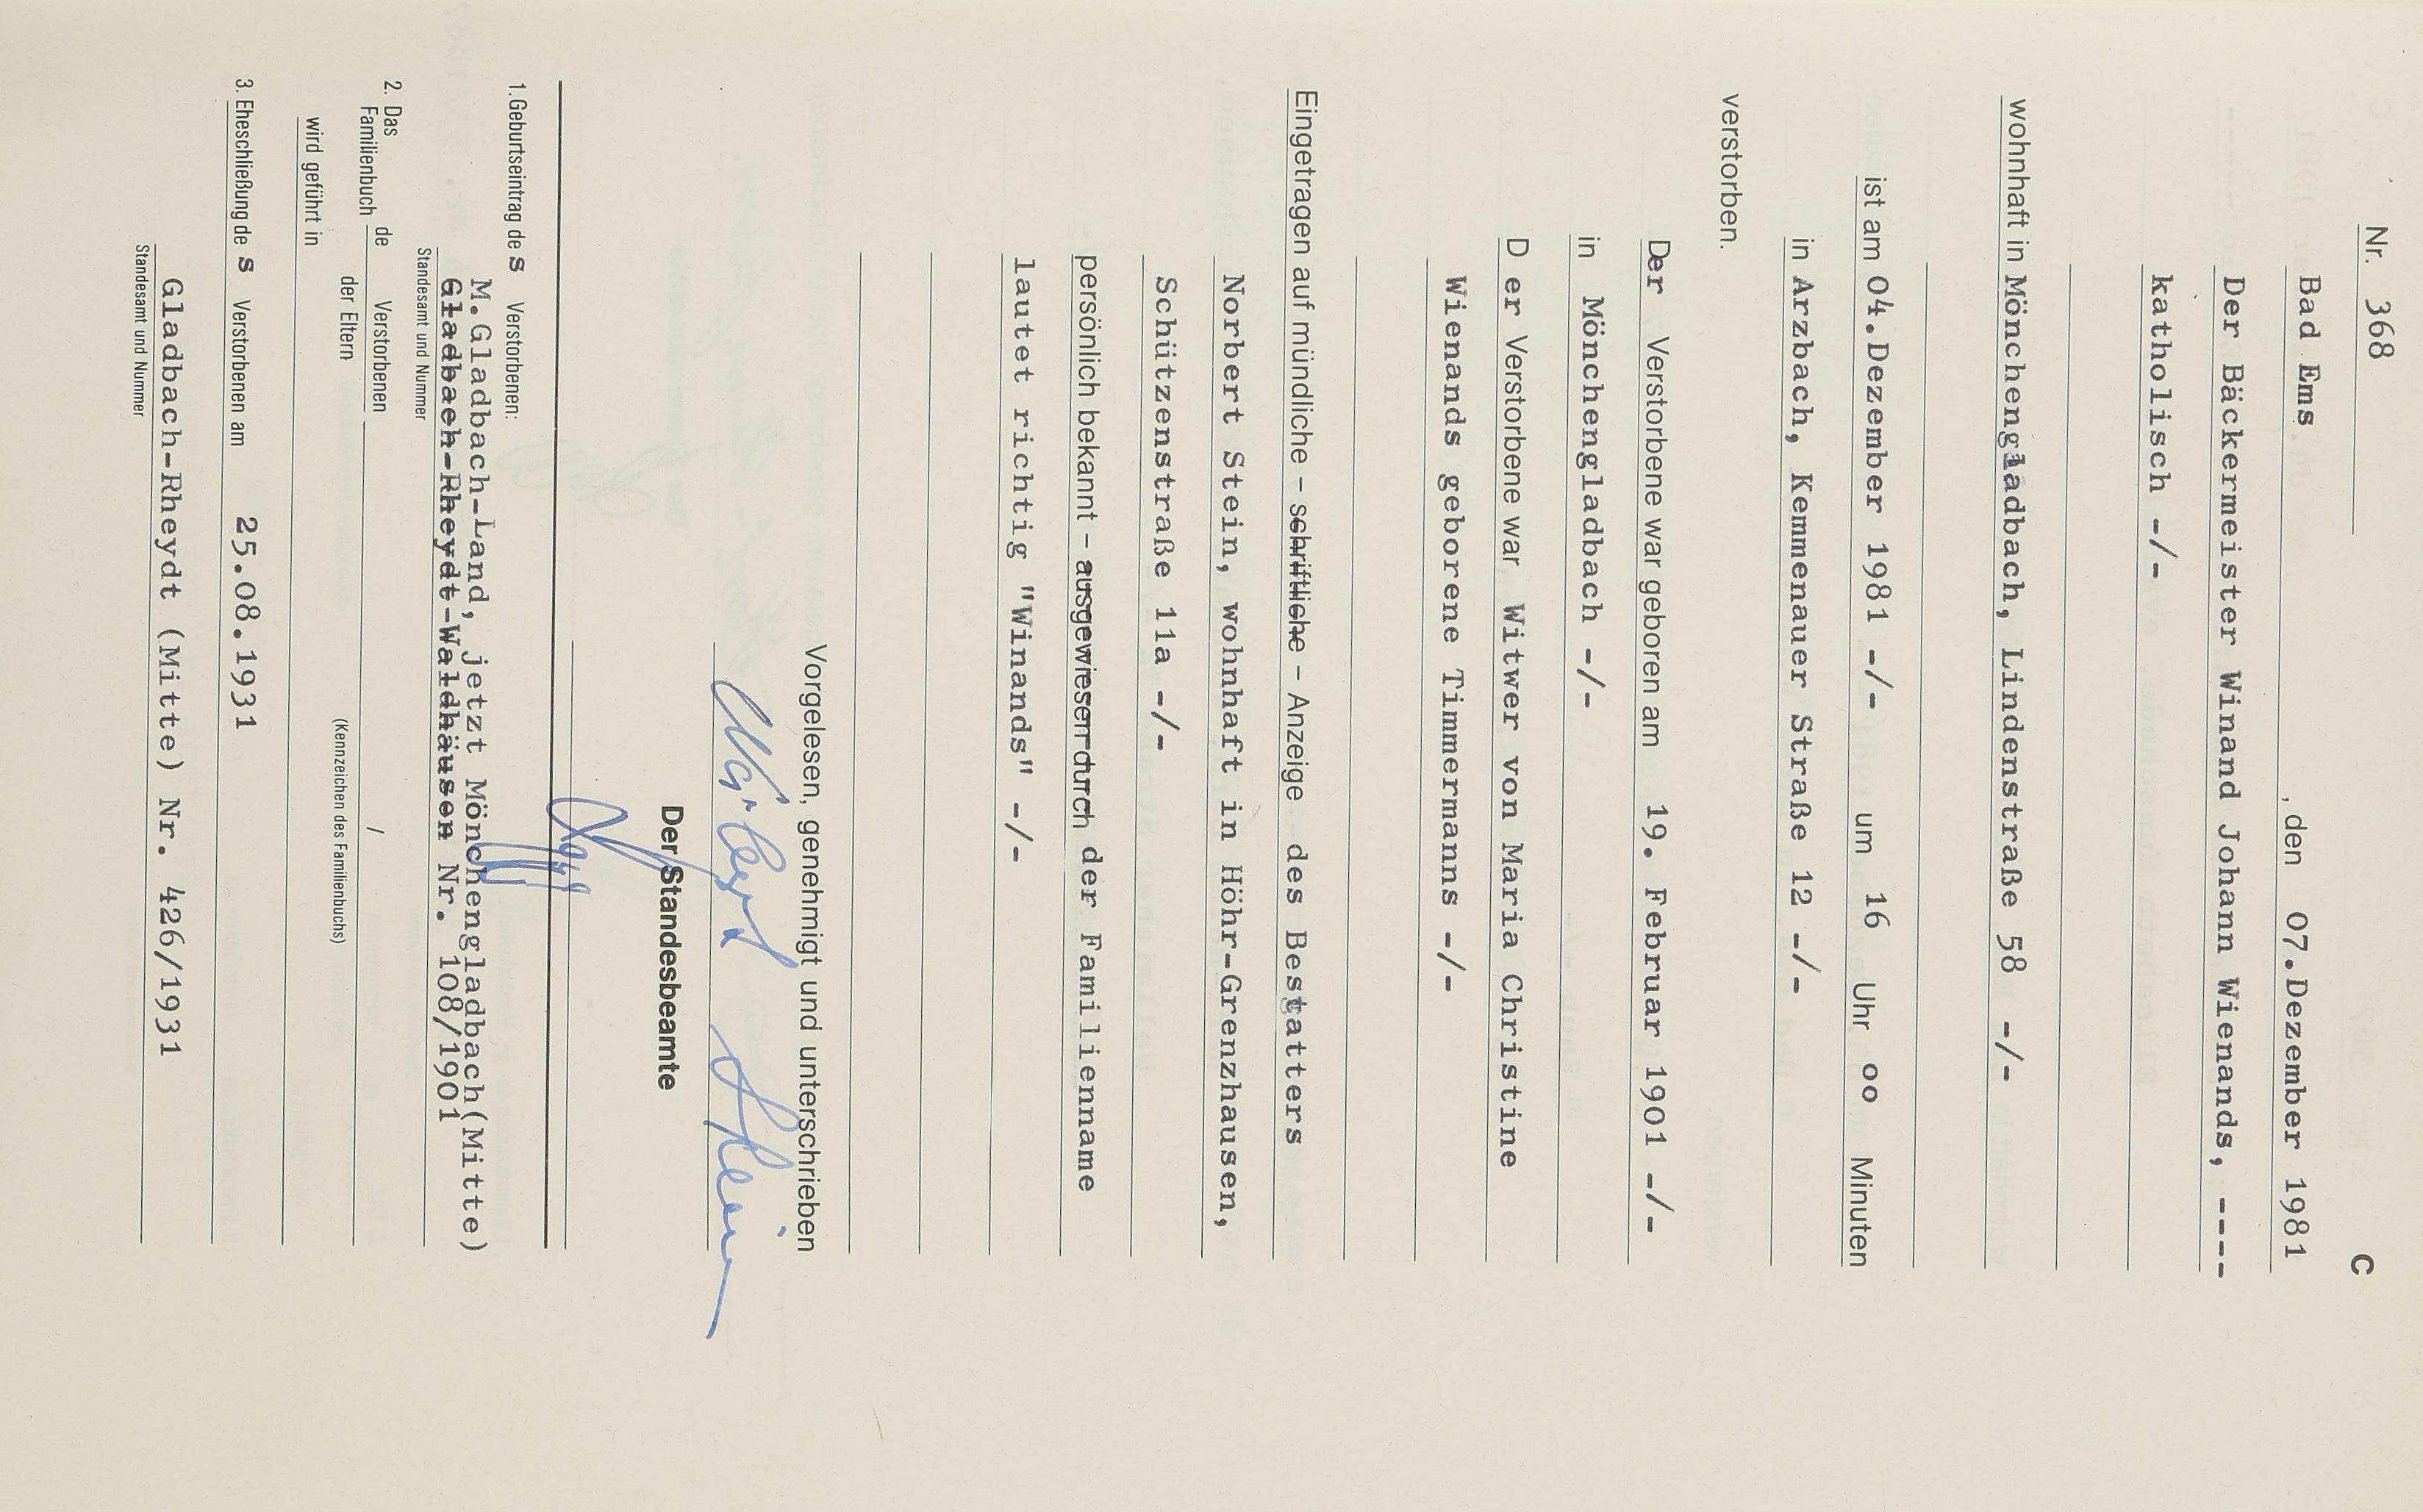 C
Nr. 368
Bad Ems , den 07.Dezember 1981
Der Bäckermeister Winand Johann Wienands, ----
katholisch -/-
wohnhaft in Mönchengladbach, Lindenstraße 58 -/-
ist am 04.Dezember 1981 -/- um 16 Uhr oo Minuten
in Arzbach, Kemmenauer Straße 12 -/-
verstorben.
Der Verstorbene war geboren am 19. Februar 1901 -/-
in Mönchengladbach -/-
D er Verstorbene war Witwer von Maria Christine
Wienands geborene Timmermanns -/-
Eingetragen auf mündliche – schriftliche – Anzeige des Bestatters
Norbert Stein, wohnhaft in Höhr-Grenzhausen,
Schützenstraße 11a -/-
persönlich bekannt – ausgewiesen durch der Familienname
lautet richtig "Winands" -/-
Vorgelesen, genehmigt und unterschrieben
Norbert Stein
Der Standesbeamte
1.Geburtseintrag des Verstorbenen:
M.Gladbach-Land, jetzt Mönchengladbach(Mitte)
Gladbach-Rheydt-Waldhausen Nr. 108/1901
Standesamt und Nummer
2. Das Familienbuch de Verstorbenen /
der Eltern (Kennzeichen des Familienbuchs)
wird geführt in
3. Eheschließung des Verstorbenen am 25.08.1931
Gladbach-Rheydt (Mitte) Nr. 426/1931
Standesamt und Nummer